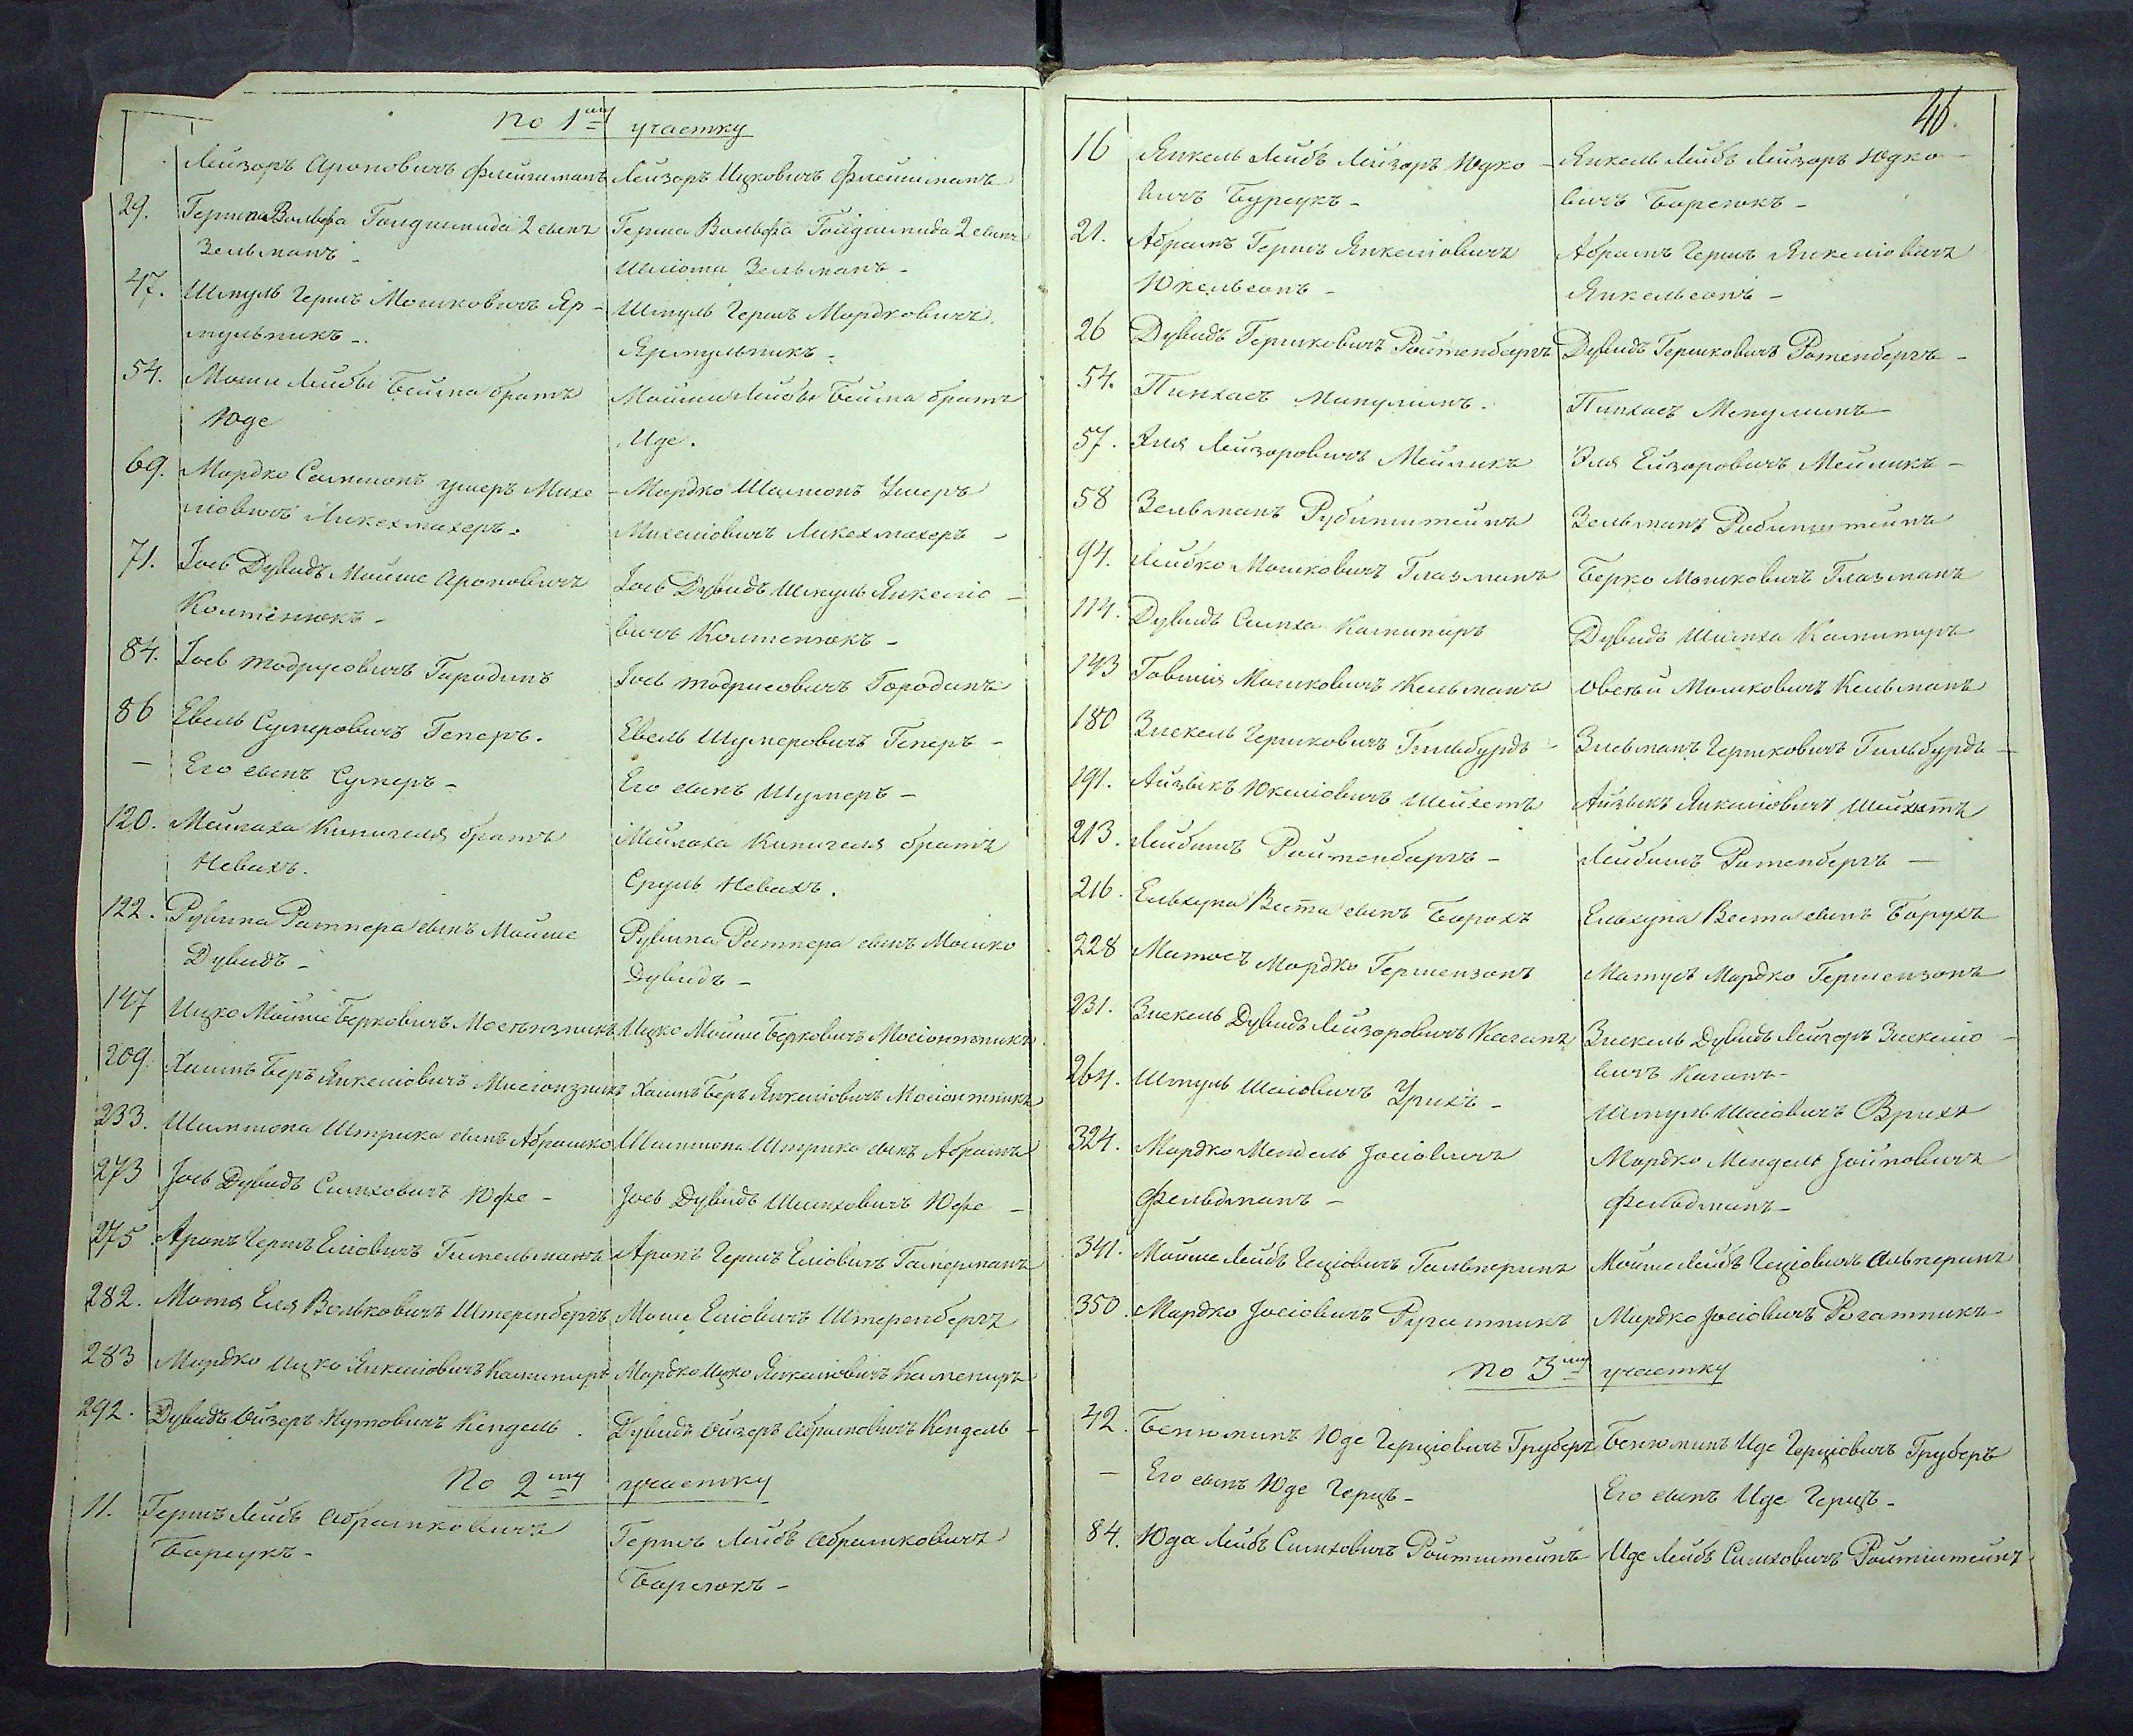 По 1му участку
Лейзоръ Ароновичъ Флейшманъ Лейзоръ Ицковичъ Флейшманъ
29. Герша Вольфа Гойдшмида 2 сынъ Герша Вольфа Гойдшмида 2 сынъ
Зельманъ - Шлiома Зельманъ -
47. Шмуль Гершъ Мошковичъ Яр- Шмуль Гершъ Мордковичъ
мульникъ - Ярмульникъ -
54. Моши Лейбы Бейма братъ Мойши Лейбы Бейма братъ
Юде Иде.
69. Мордко Самшонъ Ушеръ Михе- Мордко Шамшонъ Ушеръ
лiовичъ Ликехмахеръ - Михелiовичъ Ликехмахеръ -
71. Iосъ Дувидъ Мойше Ароновичъ Iосъ Дувидъ Шмуль Янкелiо-
Колтенюкъ - вичъ Колтенюкъ -
84. Iосъ Тодрусовичъ Городинъ Iосъ Тодрисовичъ Городинъ
86 Евель Сумеровичъ Генеръ. Евель Шумеровичъ Генеръ -
— Его сынъ Сумеръ - Его сынъ Шумеръ -
120. Мейлаха Кипигеля братъ Мейлаха Кипигеля братъ
Невахъ. Сруль Невахъ.
122. Рувина Ратнера сынъ Мойше Рувина Ратнера сынъ Мошко
Дувидъ - Дувидъ -
147 Ицко Мойше Берковичъ Ицко Мойше Берковичъ Мосiонжникъ
209. Хаимъ Беръ Янкелiовичъ Мисiонзникъ Хаимъ Беръ Янкелiовичъ Мосiонжникъ
233. Шимшона Штрика сынъ Абрашко Шимшона Штрика сынъ Абрамъ
273 Iосъ Дувидъ Симховичъ Юфе - Iосъ Дувидъ Шимховичъ Юфе -
275. Аронъ Гершъ Елiовичъ Гимельманъ Аронъ Гершъ Елiовичъ
282. Мотя Еля Вольковичъ Штеренбергъ Моше Елiовичъ Штеренбергъ
283 Мордко Ицко Янкелiовичъ Каминиръ Мордко Ицко Янкелiовичъ Камениръ
292. Дувидъ Ойзеръ Нутовичъ Кендель. Дувидъ Ойзеръ Абрамовичъ Кендель -
По 2му участку
11. Гершъ Лейбъ Абрамковичъ Гершъ Лейбъ Абрамковичъ
Барсукъ - Барсюкъ -
46.
16 Янкель Лейбъ Лейзоръ Юдко- Янкель Лейбъ Лейзоръ Юдко-
вичъ Бурсукъ - вичъ Борсюкъ -
21. Абрамъ Гершъ Янкелiовичъ Абрамъ Гершъ Янкелiовичъ
Юкельсонъ - Янкельсонъ -
26 Дувидъ Гершковичъ Ройтенбергъ Дувидъ Гершковичъ Ротенбергъ -
54. Пинхасъ Манулимъ. Пинхасъ Менулимъ
57. Эля Лейзоровичъ Мейликъ Эля Ейзоровичъ Мейликъ -
58 Зельманъ Рубинштейнъ Зельманъ Рабинштейнъ
94. Лейбко Мошковичъ Глазманъ Берко Мошковичъ Глазманъ
114. Дувидъ Симха Каминиръ Дувидъ Шимха Каминиръ
143 Говшiя Мошковичъ Кельманъ Овсъй Мошковичъ Кельманъ
180 Зискель Гершковичъ Гильбурдъ - Зисьманъ Гершковичъ Гильбурдъ -
191. Айзыкъ Юкелiовичъ Шейхетъ Айзыкъ Янкелiовичъ Шейхатъ
213. Лейбишъ Ройтенбергъ - Лейбишъ Ротенбергъ -
216. Ельхуна Веста сынъ Борохъ Ельхуна Веста сынъ Борухъ
228 Матосъ Мордко Гершензонъ Матусъ Мордко Гершензонъ
231. Зискель Дувидъ Лейзоровичъ Каганъ Зискель Дувидъ Лейзоръ Зискелiо-
вичъ Каганъ -
264. Шмуль Шаiовичъ Урихъ - Шмуль Шаiовичъ Врихъ
324. Мордко Мендель Iосiовичъ Мордко Мендель Iойновичъ
Фельдманъ - Фельдманъ -
341. Мойше Лейбъ Гецiовичъ Гальперинъ Мойше Лейбъ Гецiовичъ Альперинъ
350. Мордко Iосiовичъ Ругатникъ Мордко Iосiовичъ Рогатникъ
По 3му участку
42. Бенюминъ Юде Герцiовичъ Груберъ Бенюминъ Иде Герцiовичъ Груберъ
— Его сынъ Юде Герцъ - Его сынъ Иде Герцъ -
84. Юда Лейбъ Симховичъ Ройтштейнъ Иде Лейбъ Симховичъ Ройтштейнъ